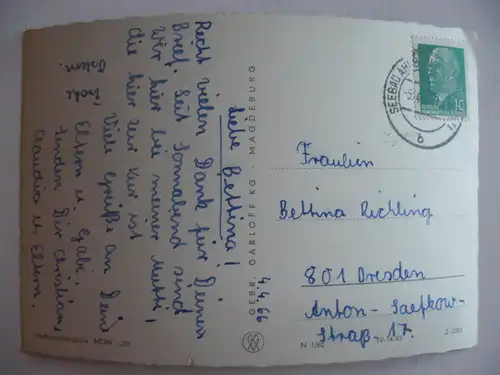 4.4.66
Liebe Bettina!
Recht vielen Dank für Deinen
Brief. Seit Sonnabend sind
wir hier bei meiner Mutti,
die hier zur Kur ist.
Viele Grüße an Deine
Eltern u. Gabi
senden Dir Christiane
Claudia u. Eltern.
GEBR. GARLOFF KG MAGDEBURG
SEEBAD AHL
b
10
Fräulein
Bettina Richling
801 Dresden
Anton-Saefkow-
Straße 17.
MDN -,20
N 1/63